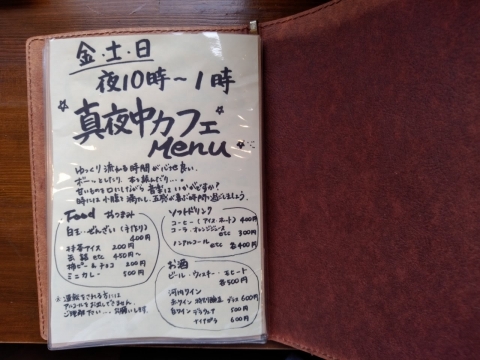 金・土・日
夜10時〜1時
真夜中カフェ
Menu
ゆっくり流れる時間が心地良い
ボーッとしたり、本を読んだり・・・。
甘いものを口にしながら音楽はいかがですか?
時には小腹を満たし、五感が喜ぶ時間を過ごしましょう。
Food おつまみ
白玉・ぜんざい(手作り)
400円
抹茶アイス 200円
缶詰 etc 450円〜
柿ピー&チョコ 200円
ミニカレー 500円
※運転をされる方には
アルコールをお出しできません。
ご理解下さい…お願いします。
ソフトドリンク
コーヒー(アイス・ホット) 400円
コーラ・オレンジジュース
etc 300円
ノンアルコール etc 各400円
お酒
ビール・ウィスキー・モヒート
各500円
河内ワイン
赤ワイン グラス 600円
白ワイン デラウェア 500円
ナイアガラ 600円